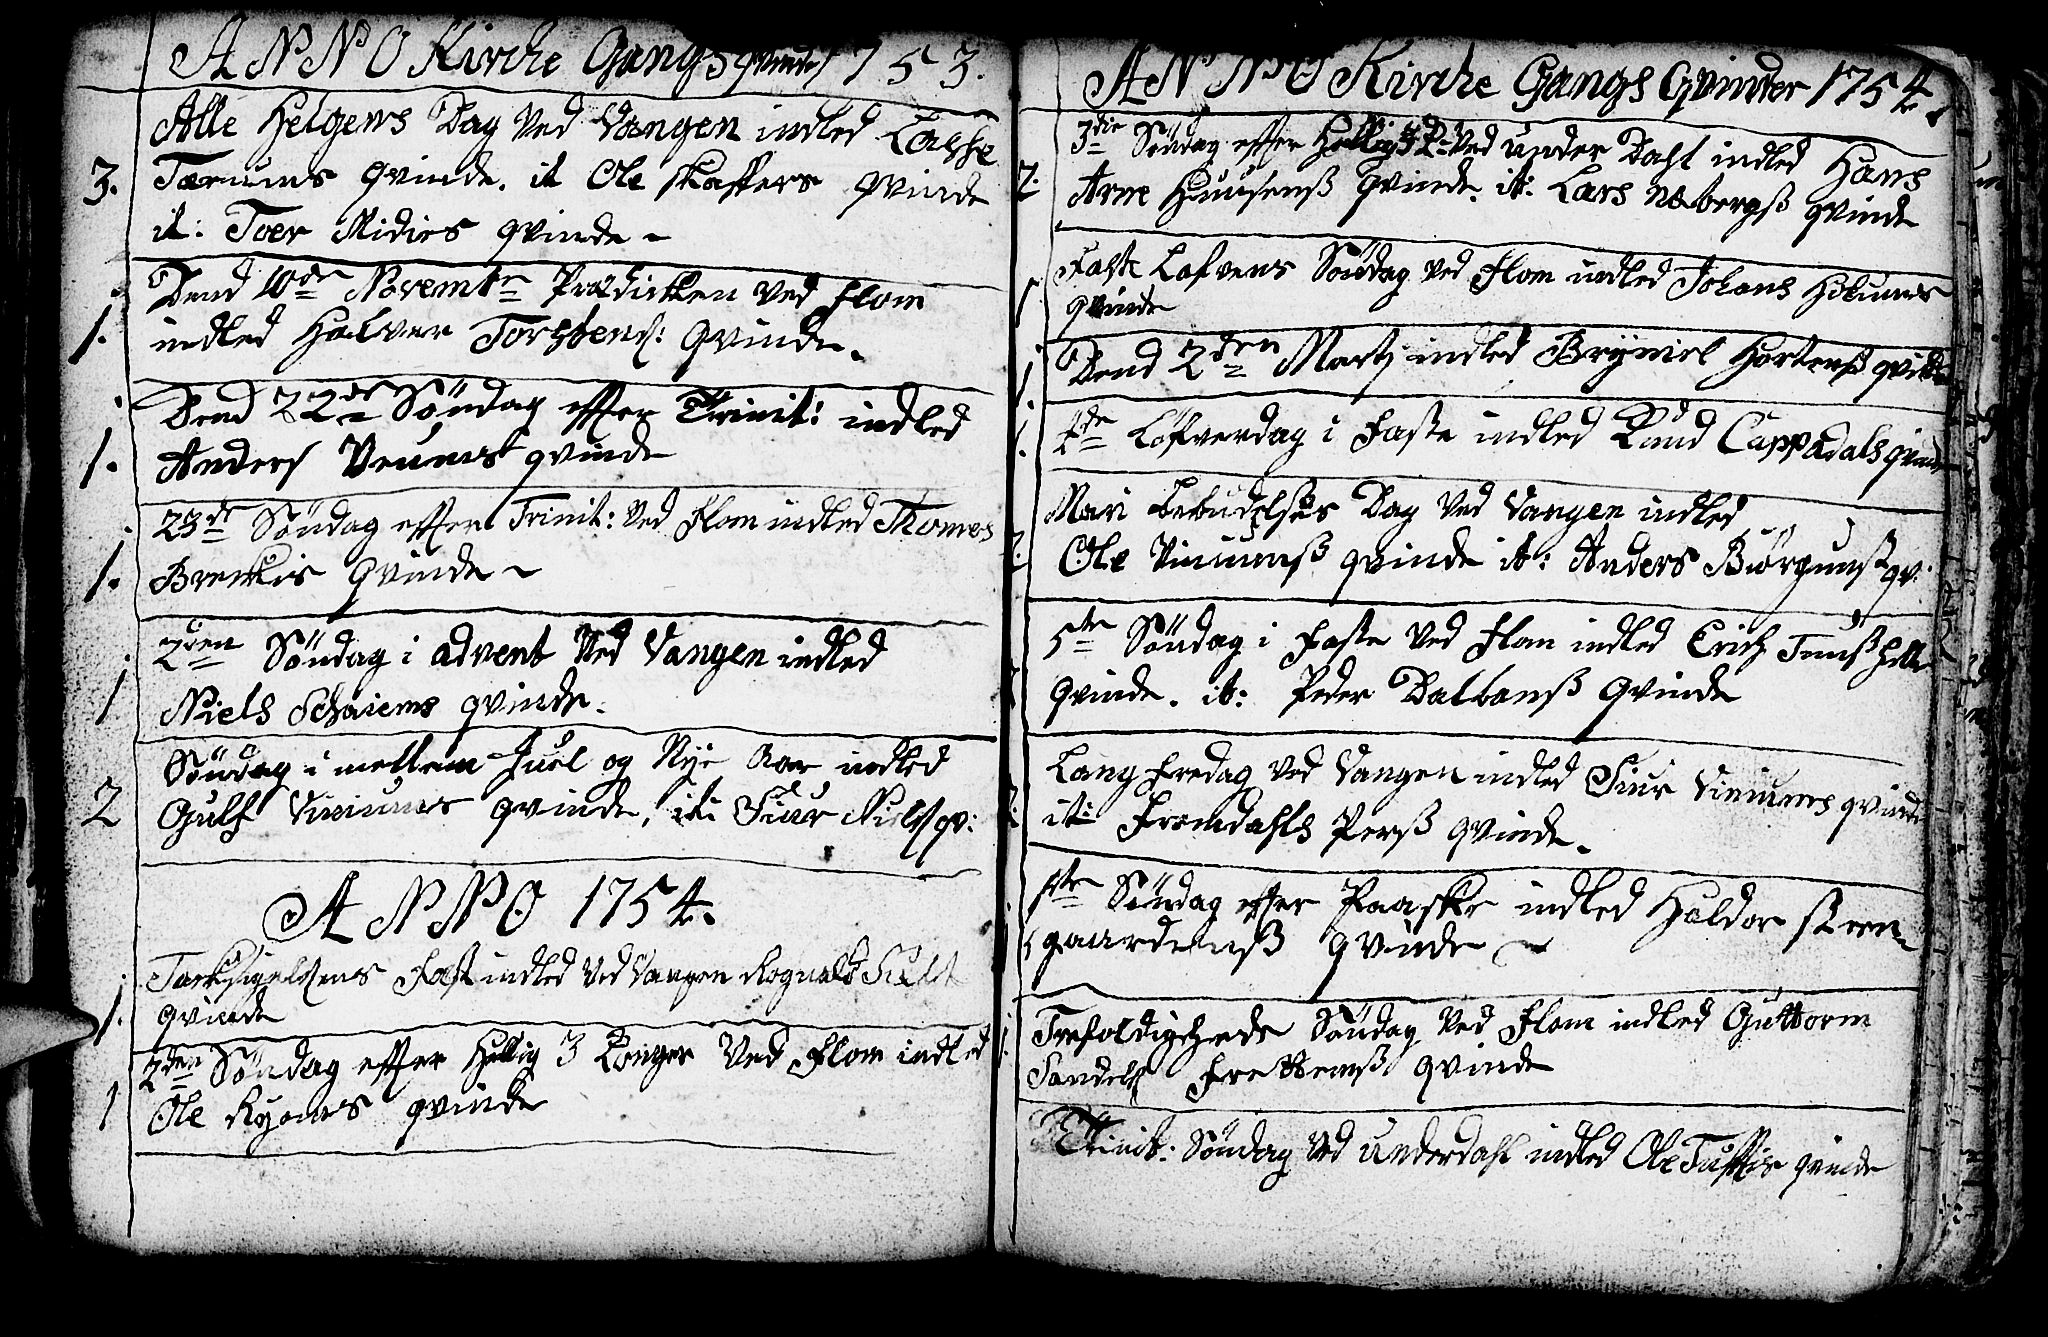 ANNO Kirche Gangs qvinder 1753.
Alle Helgens Dag ved Vangen indled Lasse
3. Tærums qvinde. it Ole skaffers qvinde
it: Toer Midies qvinde
Dend 10de Novembr Prædicken ved Flom
1. indled Halvor Torstens: qvinde.
Dend 22de Söndag effter Trinit: indled
1. Anders Venums qvinde
23de Söndag effter Trinit: ved Flom indled Thomes
1. Breckis qvinde
2den Söndag i advent ved Vangen indled
1 Niels Schaiems qvinde.
Söndag i mellem Juel og Nye Aar indled
2 Gulf Viniums qvinde, it: Siur Niels qv:
ANNO 1754.
Tacksigelsens Fest indled ved Vangen Rognald
1. qvinde
2den Söndag effter Hellig 3 Konger ved Flom indled
1 Ole Ryoms qvinde
ANNO Kirche Gangs Qvinder 1754.
3die Söndag effter Hellig 3 K: ved under Dahl indled Hans
2: Arne Huusenß qvinde. it: Lars Nebergß qvinde
Faste Lafvens Söndag ved Flom indled Johans
1 qvinde
1. Dend 2den Martj indled Bryniel Hortenß qvinde
1. 4de Löfverdag i Faste indled Knud Cappadals qvinde
Mari Bebudelses Dag ved Vangen indled
2. Ole Viniumß qvinde it: Anders Biørgumß qv:
5te Söndag i Faste ved Flam indled Erich
qvinde. it: Peder Dalbonß qvinde
Lang Fredag ved Vangen indled Siur Viniums qvinde
2: it: Fromdahls Perß qvinde.
1ste Söndag effter Paaske indled Haldor steen-
gaardenß qvinde
Trefoldigheds Söndag ved Flom indled Guttorm
1. Frettemß qvinde
Trinit: Söndag ved underdahl indled Ole Tufftis qvinde